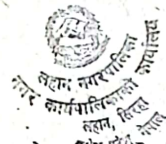 लहान नगरपालिका
नगर कार्यपालिकाको कार्यालय
लहान, सिरहा